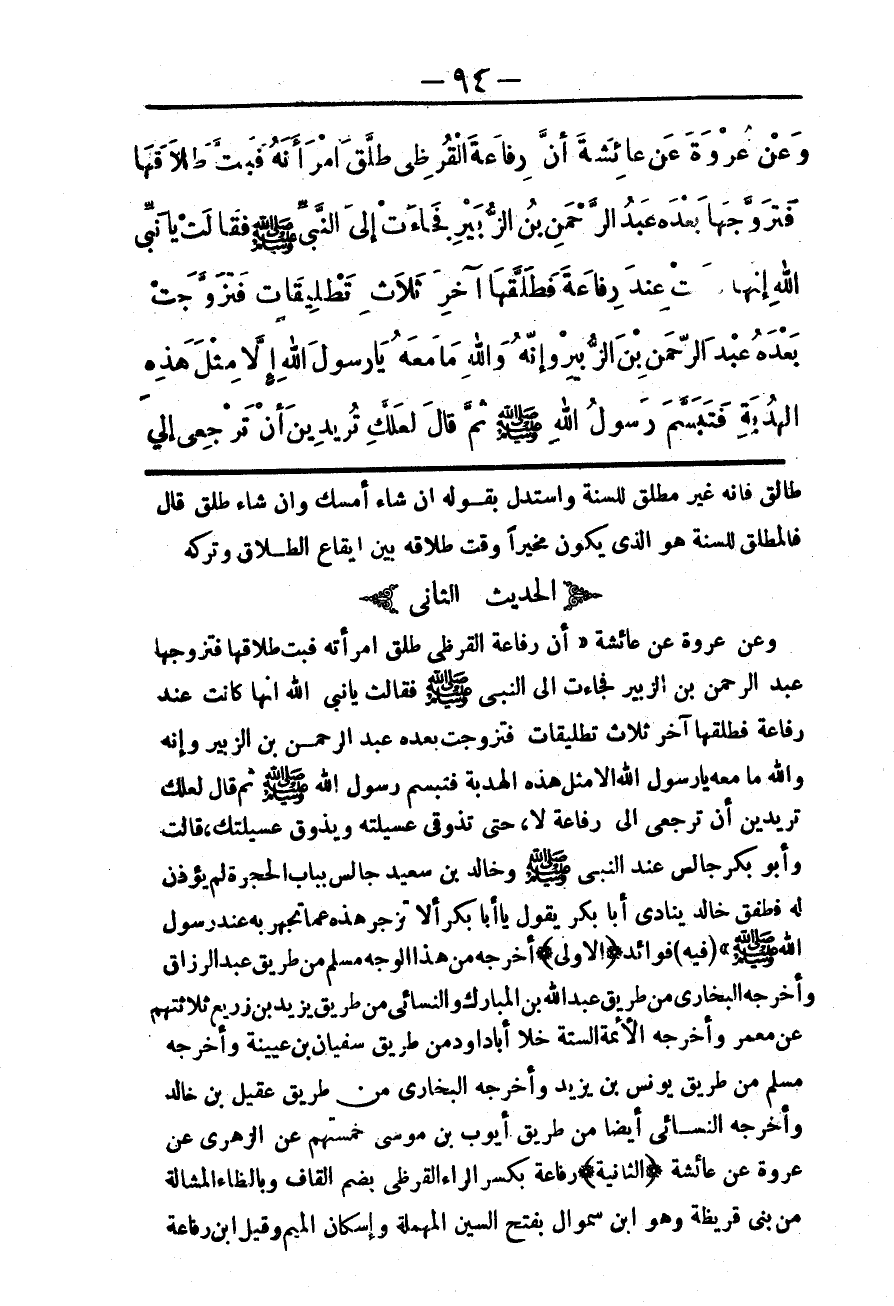 — ٩٤ —
وَعَنْ عُرْوَةَ عَن عائِشةَ أنَّ رِفاعةَ الْقُرَظِى طلَّقَ امْرَأتَهُ فَبَتَّ طَلاقَها
فَتزَوَّجَها بَعْدَه عَبدُ الرَّحْمَنِ بنُ الزُّبيْرِ فجَاءَتْ إلىَ النَّبىِّ ﷺ فقالَتْ يا نَبىَّ
اللهِ إنها تْ عِندَ رِفاعَةَ فَطلَّقهَا آخرَ ثَلاثِ تَطْلِيقَاتٍ فَتزَوَّجَتْ
بَعْدَهُ عبْدَ الرّحْمَنِ بْنَ الزُّبيرْ وإنّهُ وَاللهِ مَا معَهُ يَارسولَ اللهِ إلَّا مِثْلَ هَذِهِ
الهُدْبَةِ فَتَبَسَّمَ رَسولُ اللهِ ﷺ ثمَّ قالَ لعَلكِ تُريدِينَ أنْ تَرْجِعِى إلي
طالق فانه غير مطلق للسنة واستدل بقوله ان شاء أمسك وان شاء طلق قال
فالمطلق للسنة هو الذى يكون مخيراً وقت طلاقه بين ايقاع الطلاق وتركه
الحديث الثانى
وعن عروة عن عائشة « أن رفاعة القرظى طلق امرأته فبت طلاقها فتزوجها
عبد الرحمن بن الزبير فجاءت الى النبى ﷺ فقالت يانبى الله انها كانت عند
رفاعة فطلقها آخر ثلاث تطليقات فتزوجت بعده عبد الرحمن بن الزبير وإنه
والله ما معه يارسول الله الامثل هذه الهدبة فتبسم رسول الله ﷺ ثم قال لعلك
تريدين أن ترجعى الى رفاعة لا، حتى تذوقى عسيلته ويذوق عسيلتك، قالت
وأبو بكر جالس عند النبى ﷺ وخالد بن سعيد جالس بباب الحجرة لم يؤذن
له فطفق خالد ينادى أبا بكر يقول ياأبا بكر ألا تزجر هذه عما تجهر به عند رسول
الله ﷺ » (فيه) فوائد ﴿الاولى﴾ أخرجه من هذا الوجه مسلم من طريق عبد الرزاق
وأخرجه البخارى من طريق عبد الله بن المبارك والنسائى من طريق يزيد بن زريع ثلاثتهم
عن معمر وأخرجه الأئمة الستة خلا أباداود من طريق سفيان بن عيينة وأخرجه
مسلم من طريق يونس بن يزيد وأخرجه البخارى من طريق عقيل بن خالد
وأخرجه النسائى أيضا من طريق أيوب بن موسى خمستهم عن الزهرى عن
عروة عن عائشة ﴿الثانية﴾ رفاعة بكسر الراء القرظى بضم القاف وبالظاء المشالة
من بنى قريظة وهو ابن سموال بفتح السين المهملة وإسكان الميم وقيل ابن رفاعة